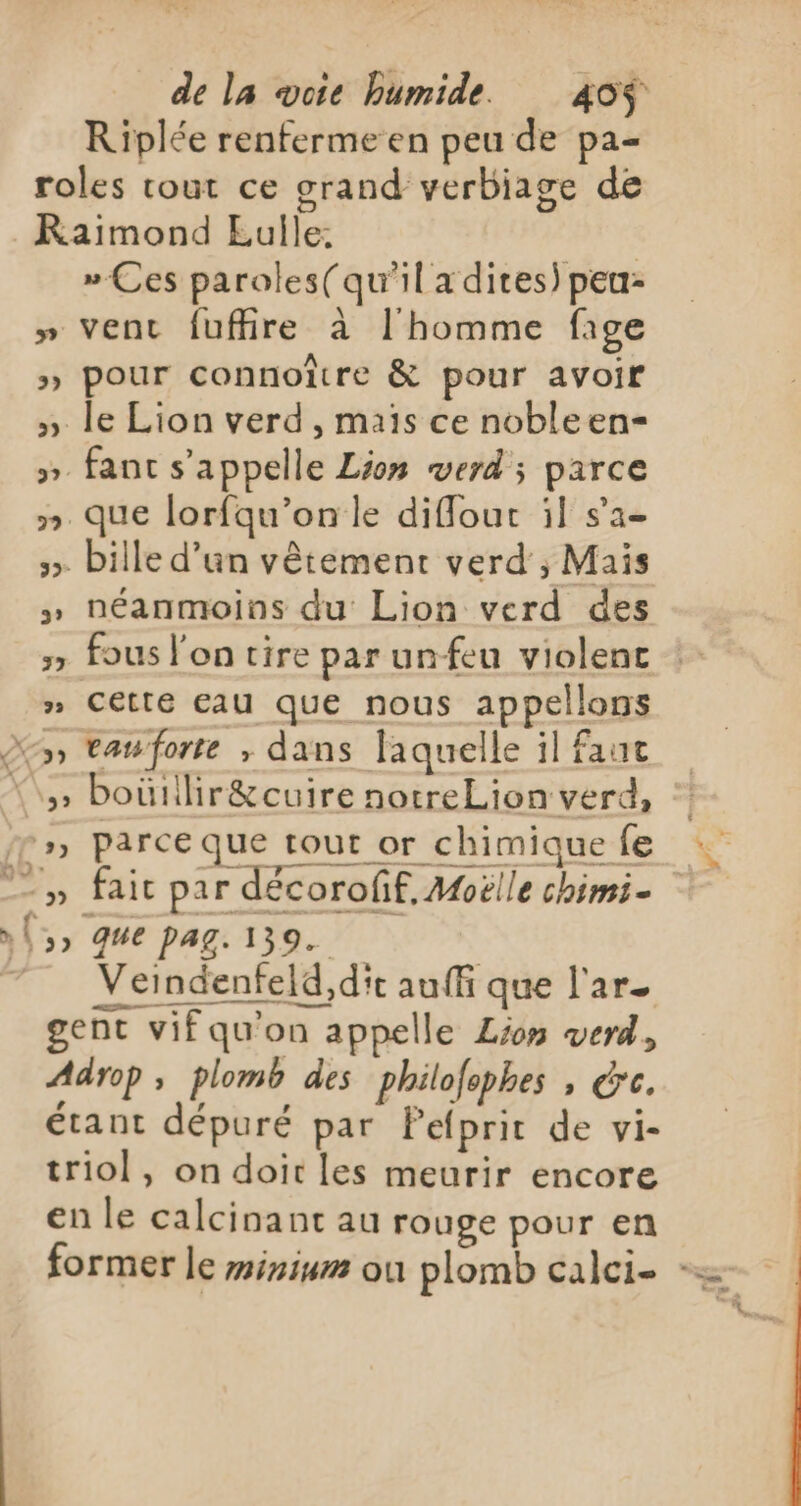 de la voie humide. 405
Riplée renferme en peu de pa-
roles tout ce grand verbiage de
Raimond Lulle.
» Ces paroles (qu'il a dites) peu-
„ vent ſuffire à l'homme ſage
„ pour connoître & pour avoir
„ le Lion verd, mais ce noble en-
„ fant s'appelle Lion verd; parce
„ que lorſqu'on le diſſout il s'a-
„ bille d'un vêtement verd; Mais
„ néanmoins du Lion verd des
„ fous l'on tire par un feu violent
„ cette eau que nous appellons
„ eau forte, dans laquelle il faut
„ boüillir & cuire notre Lion verd,
„ parce que tout or chimique ſe
„ fait par décoroſif, Moëlle chimi-
„ que pag. 139.
Veindenfeld, dit auſſi que l'ar-
gent vif qu'on appelle Lion verd,
Adrop, plomb des philoſophes, &c.
étant dépuré par l'eſprit de vi-
triol, on doit les meurir encore
en le calcinant au rouge pour en
former le minium ou plomb calci-